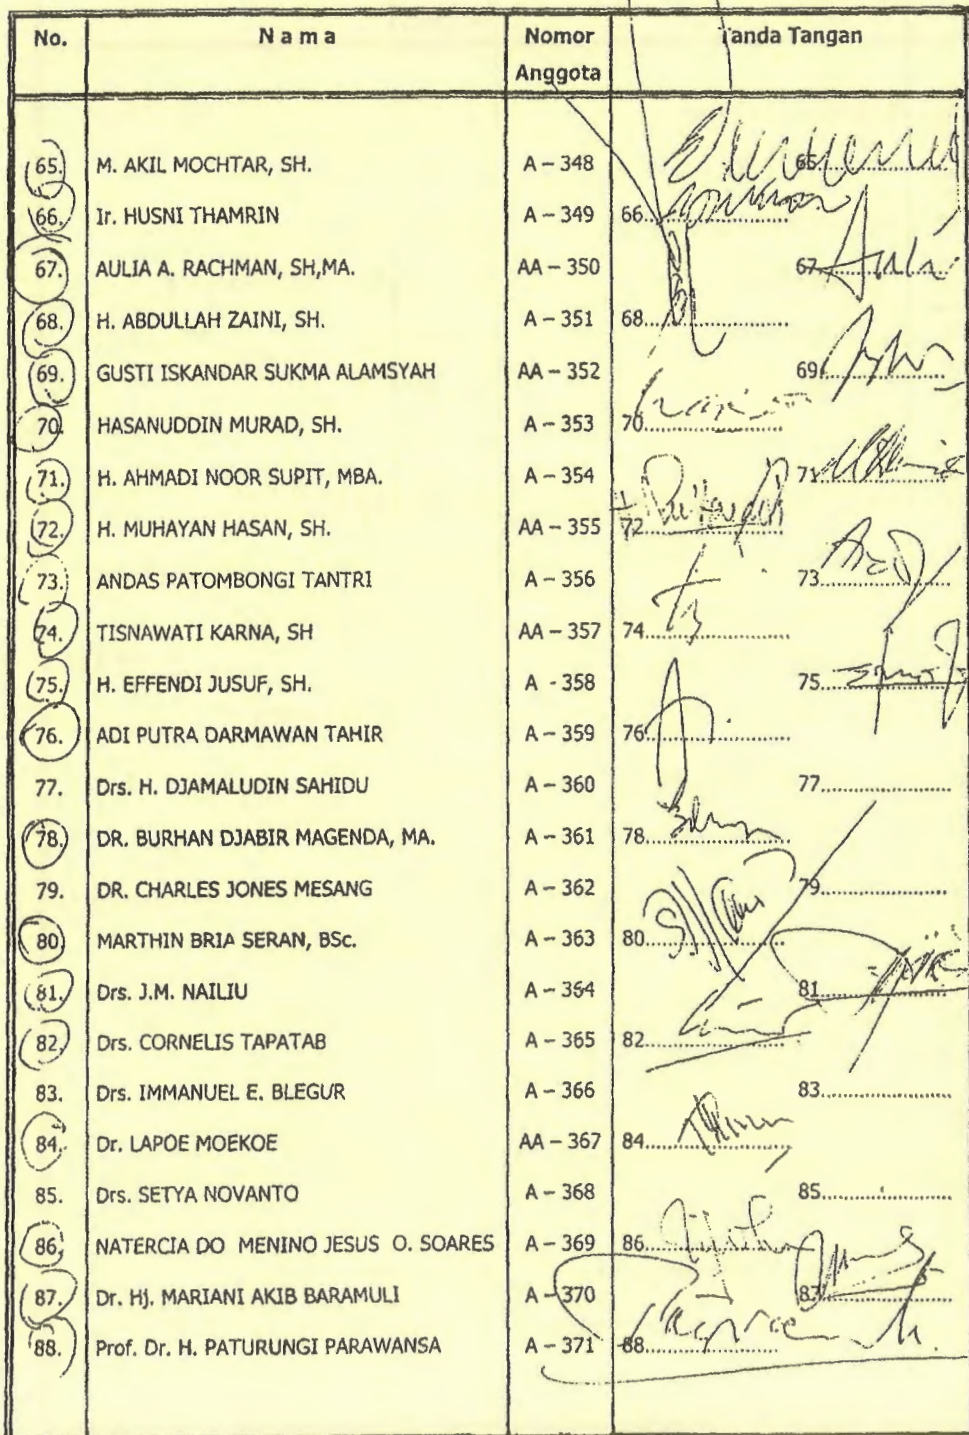 No. Nama Nomor Anggota Tanda Tangan
65. M. AKIL MOCHTAR, SH. A – 348 65
66. Ir. HUSNI THAMRIN A – 349 66
67. AULIA A. RACHMAN, SH,MA. AA – 350 67
68. H. ABDULLAH ZAINI, SH. A – 351 68
69. GUSTI ISKANDAR SUKMA ALAMSYAH AA – 352 69
70. HASANUDDIN MURAD, SH. A – 353 70
71. H. AHMADI NOOR SUPIT, MBA. A – 354 71
72. H. MUHAYAN HASAN, SH. AA – 355 72
73. ANDAS PATOMBONGI TANTRI A – 356 73
74. TISNAWATI KARNA, SH AA – 357 74
75. H. EFFENDI JUSUF, SH. A - 358 75
76. ADI PUTRA DARMAWAN TAHIR A – 359 76
77. Drs. H. DJAMALUDIN SAHIDU A – 360 77
78. DR. BURHAN DJABIR MAGENDA, MA. A – 361 78
79. DR. CHARLES JONES MESANG A – 362 79
80 MARTHIN BRIA SERAN, BSc. A – 363 80
81. Drs. J.M. NAILIU A – 364 81
82. Drs. CORNELIS TAPATAB A – 365 82
83. Drs. IMMANUEL E. BLEGUR A – 366 83
84. Dr. LAPOE MOEKOE AA – 367 84
85. Drs. SETYA NOVANTO A – 368 85
86. NATERCIA DO MENINO JESUS O. SOARES A – 369 86
87. Dr. Hj. MARIANI AKIB BARAMULI A – 370 87
88. Prof. Dr. H. PATURUNGI PARAWANSA A – 371 88